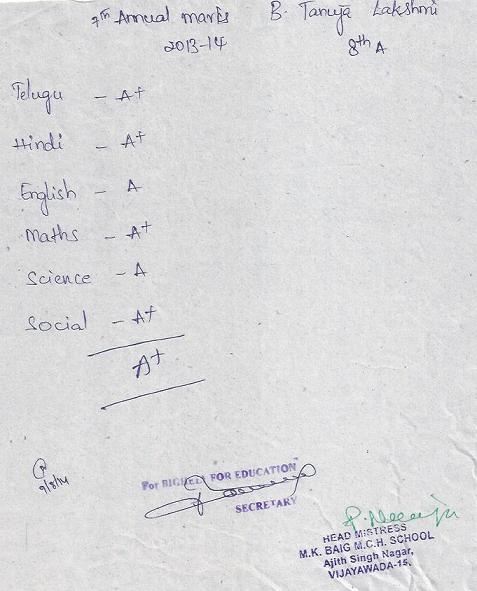 7th Annual marks
2013-14
B. Tanuja Lakshmi
8th A
Telugu - A+
Hindi - A+
English - A
Maths - A+
Science - A
Social - A+
A+
9/8/14
For BIGHELP FOR EDUCATION
SECRETARY
HEAD MISTRESS
M.K. BAIG M.C.H. SCHOOL
Ajith Singh Nagar,
VIJAYAWADA-15.